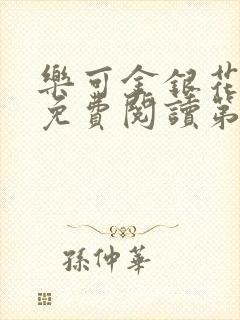 樂可金銀花
免費閱讀第
孫仲華